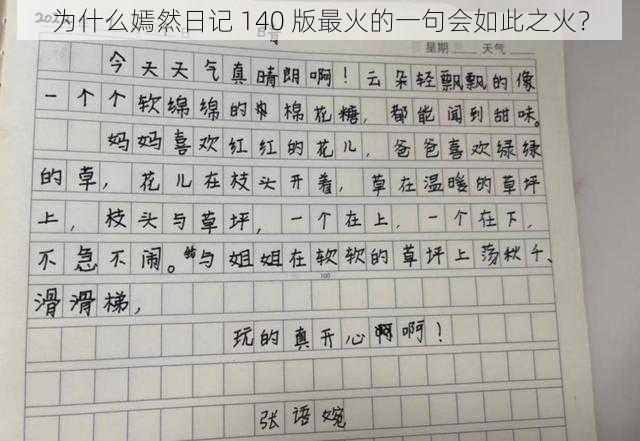 为什么嫣然日记 140 版最火的一句会如此之火？
202
晴
星期 天气
今天天气真晴朗啊！云朵轻飘飘的像
一个个软绵绵的棉花糖，都能闻到甜味。
妈妈喜欢红红的花儿，爸爸喜欢绿绿
的草，花儿在枝头开着，草在温暖的草坪
上，枝头与草坪，一个在上，一个在下，
不急不闹。与姐姐在软软的草坪上荡秋千、
100
滑滑梯，
玩的真开心啊！
张语婉